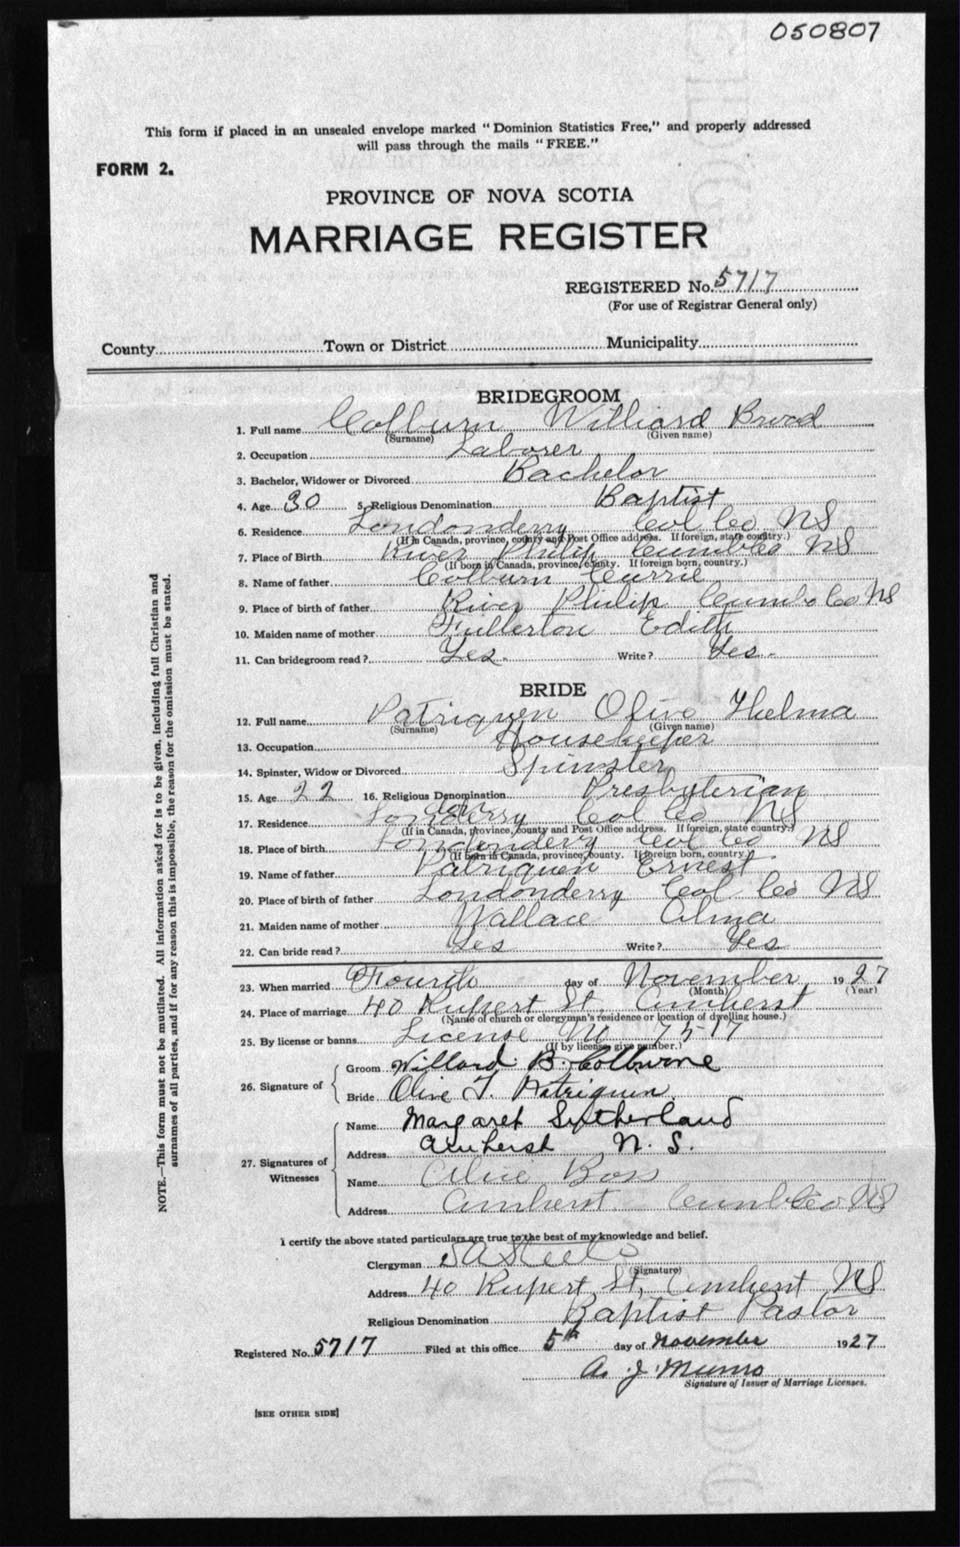 050807
This form if placed in an unsealed envelope marked "Dominion Statistics Free," and properly addressed
will pass through the mails "FREE."
FORM 2.
PROVINCE OF NOVA SCOTIA
MARRIAGE REGISTER
REGISTERED No. 5717
(For use of Registrar General only)
County Town or District Municipality
BRIDEGROOM
1. Full name Colburn Williard Brod
(Surname) (Given name)
2. Occupation Laborer
3. Bachelor, Widower or Divorced Bachelor
4. Age 30 5. Religious Denomination Baptist
6. Residence Londonderry Col Co NS
(If in Canada, province, county and Post Office address. If foreign, state country.)
7. Place of Birth River Philip Cumb Co NS
(If born in Canada, province, county. If foreign born, country.)
8. Name of father Colburn Currie
9. Place of birth of father River Philip Cumb Co NS
10. Maiden name of mother Fullerton Edith
11. Can bridegroom read? Yes. Write? Yes.
BRIDE
12. Full name Patriquen Olive Thelma
(Surname) (Given name)
13. Occupation Housekeeper
14. Spinster, Widow or Divorced Spinster
15. Age 22 16. Religious Denomination Presbyterian
17. Residence Londonderry Col Co NS
(If in Canada, province, county and Post Office address. If foreign, state country.)
18. Place of birth Londonderry Col Co NS
(If born in Canada, province, county. If foreign born, country.)
19. Name of father Patriquen Ernest
20. Place of birth of father Londonderry Col Co NS
21. Maiden name of mother Wallace Alma
22. Can bride read? Yes Write? Yes
23. When married Fourth day of November 1927
(Month) (Year)
24. Place of marriage 40 Rupert St, Amherst
(Name of church or clergyman's residence or location of dwelling house.)
25. By license or banns License No
(If by license, give number.)
26. Signature of Groom Willard B. Colburne
Bride Olive T. Patriquin
27. Signatures of Witnesses Name Margaret Sutherland
Address Amherst N. S.
Name Alice Boss
Address Amherst Cumb Co NS
I certify the above stated particulars are true to the best of my knowledge and belief.
Clergyman
(Signature)
Address 40 Rupert St, Amherst NS
Religious Denomination Baptist Pastor
Registered No. 5717 Filed at this office 5th day of November 1927
A. J. Munro
Signature of Issuer of Marriage Licenses.
[SEE OTHER SIDE]
NOTE.—This form must not be mutilated. All information asked for is to be given, including full Christian and
surnames of all parties, and if for any reason this is impossible, the reason for the omission must be stated.